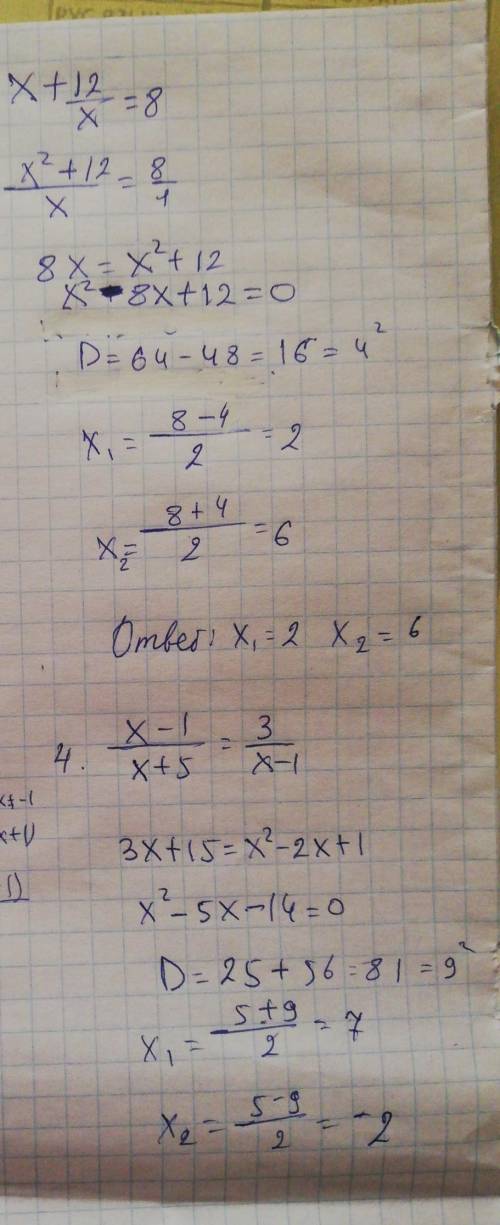 x + 12/x = 8
x² + 12 / x = 8/1
8x = x² + 12
x² - 8x + 12 = 0
D = 64 - 48 = 16 = 4²
x₁ = 8 - 4 / 2 = 2
x₂ = 8 + 4 / 2 = 6
Ответ: x₁ = 2 x₂ = 6
4. x - 1 / x + 5 = 3 / x - 1
3x + 15 = x² - 2x + 1
x² - 5x - 14 = 0
D = 25 + 56 = 81 = 9²
x₁ = 5 + 9 / 2 = 7
x₂ = 5 - 9 / 2 = -2